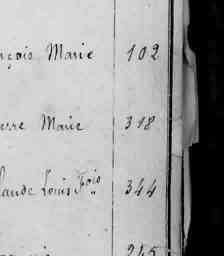 nçois Marie 102
erre Marie 318
laude Louis Fois 344
245